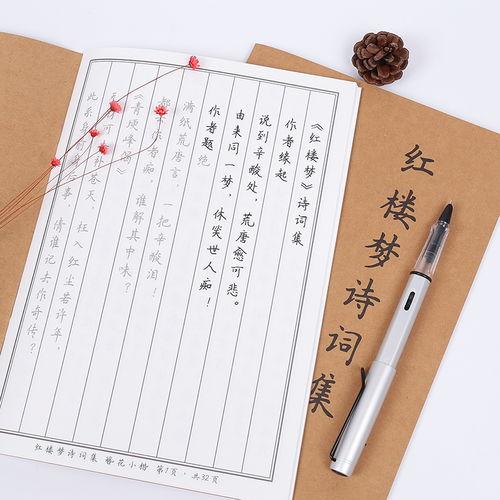 《红楼梦》诗词集
作者缘起
说到辛酸处，荒唐愈可悲。
由来同一梦，休笑世人痴！
作者题绝
满纸荒唐言，一把辛酸泪！
都作者痴，谁解其中味？
《青埂峰偈》
无可补苍天，枉入红尘若许年，
此系身前身后事，倩谁记去作奇传？
红楼梦诗词集 簪花小楷 第1页·共32页
红楼梦诗词集